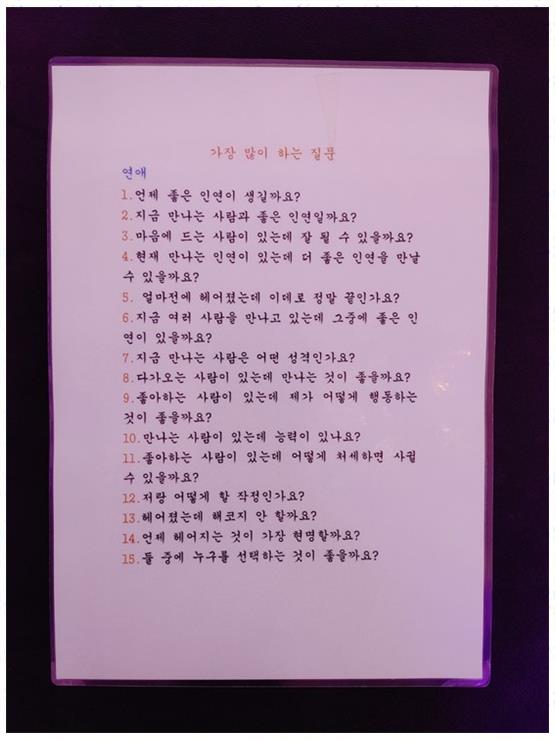 가장 많이 하는 질문
연애
1.언제 좋은 인연이 생길까요?
2.지금 만나는 사람과 좋은 인연일까요?
3.마음에 드는 사람이 있는데 잘 될 수 있을까요?
4.현재 만나는 인연이 있는데 더 좋은 인연을 만날
수 있을까요?
5. 얼마전에 헤어졌는데 이데로 정말 끝인가요?
6.지금 여러 사람을 만나고 있는데 그중에 좋은 인
연이 있을까요?
7.지금 만나는 사람은 어떤 성격인가요?
8.다가오는 사람이 있는데 만나는 것이 좋을까요?
9.좋아하는 사람이 있는데 제가 어떻게 행동하는
것이 좋을까요?
10.만나는 사람이 있는데 능력이 있나요?
11.좋아하는 사람이 있는데 어떻게 처세하면 사귈
수 있을까요?
12.저랑 어떻게 할 작정인가요?
13.헤어졌는데 해코지 안 할까요?
14.언제 헤어지는 것이 가장 현명할까요?
15.둘 중에 누구를 선택하는 것이 좋을까요?